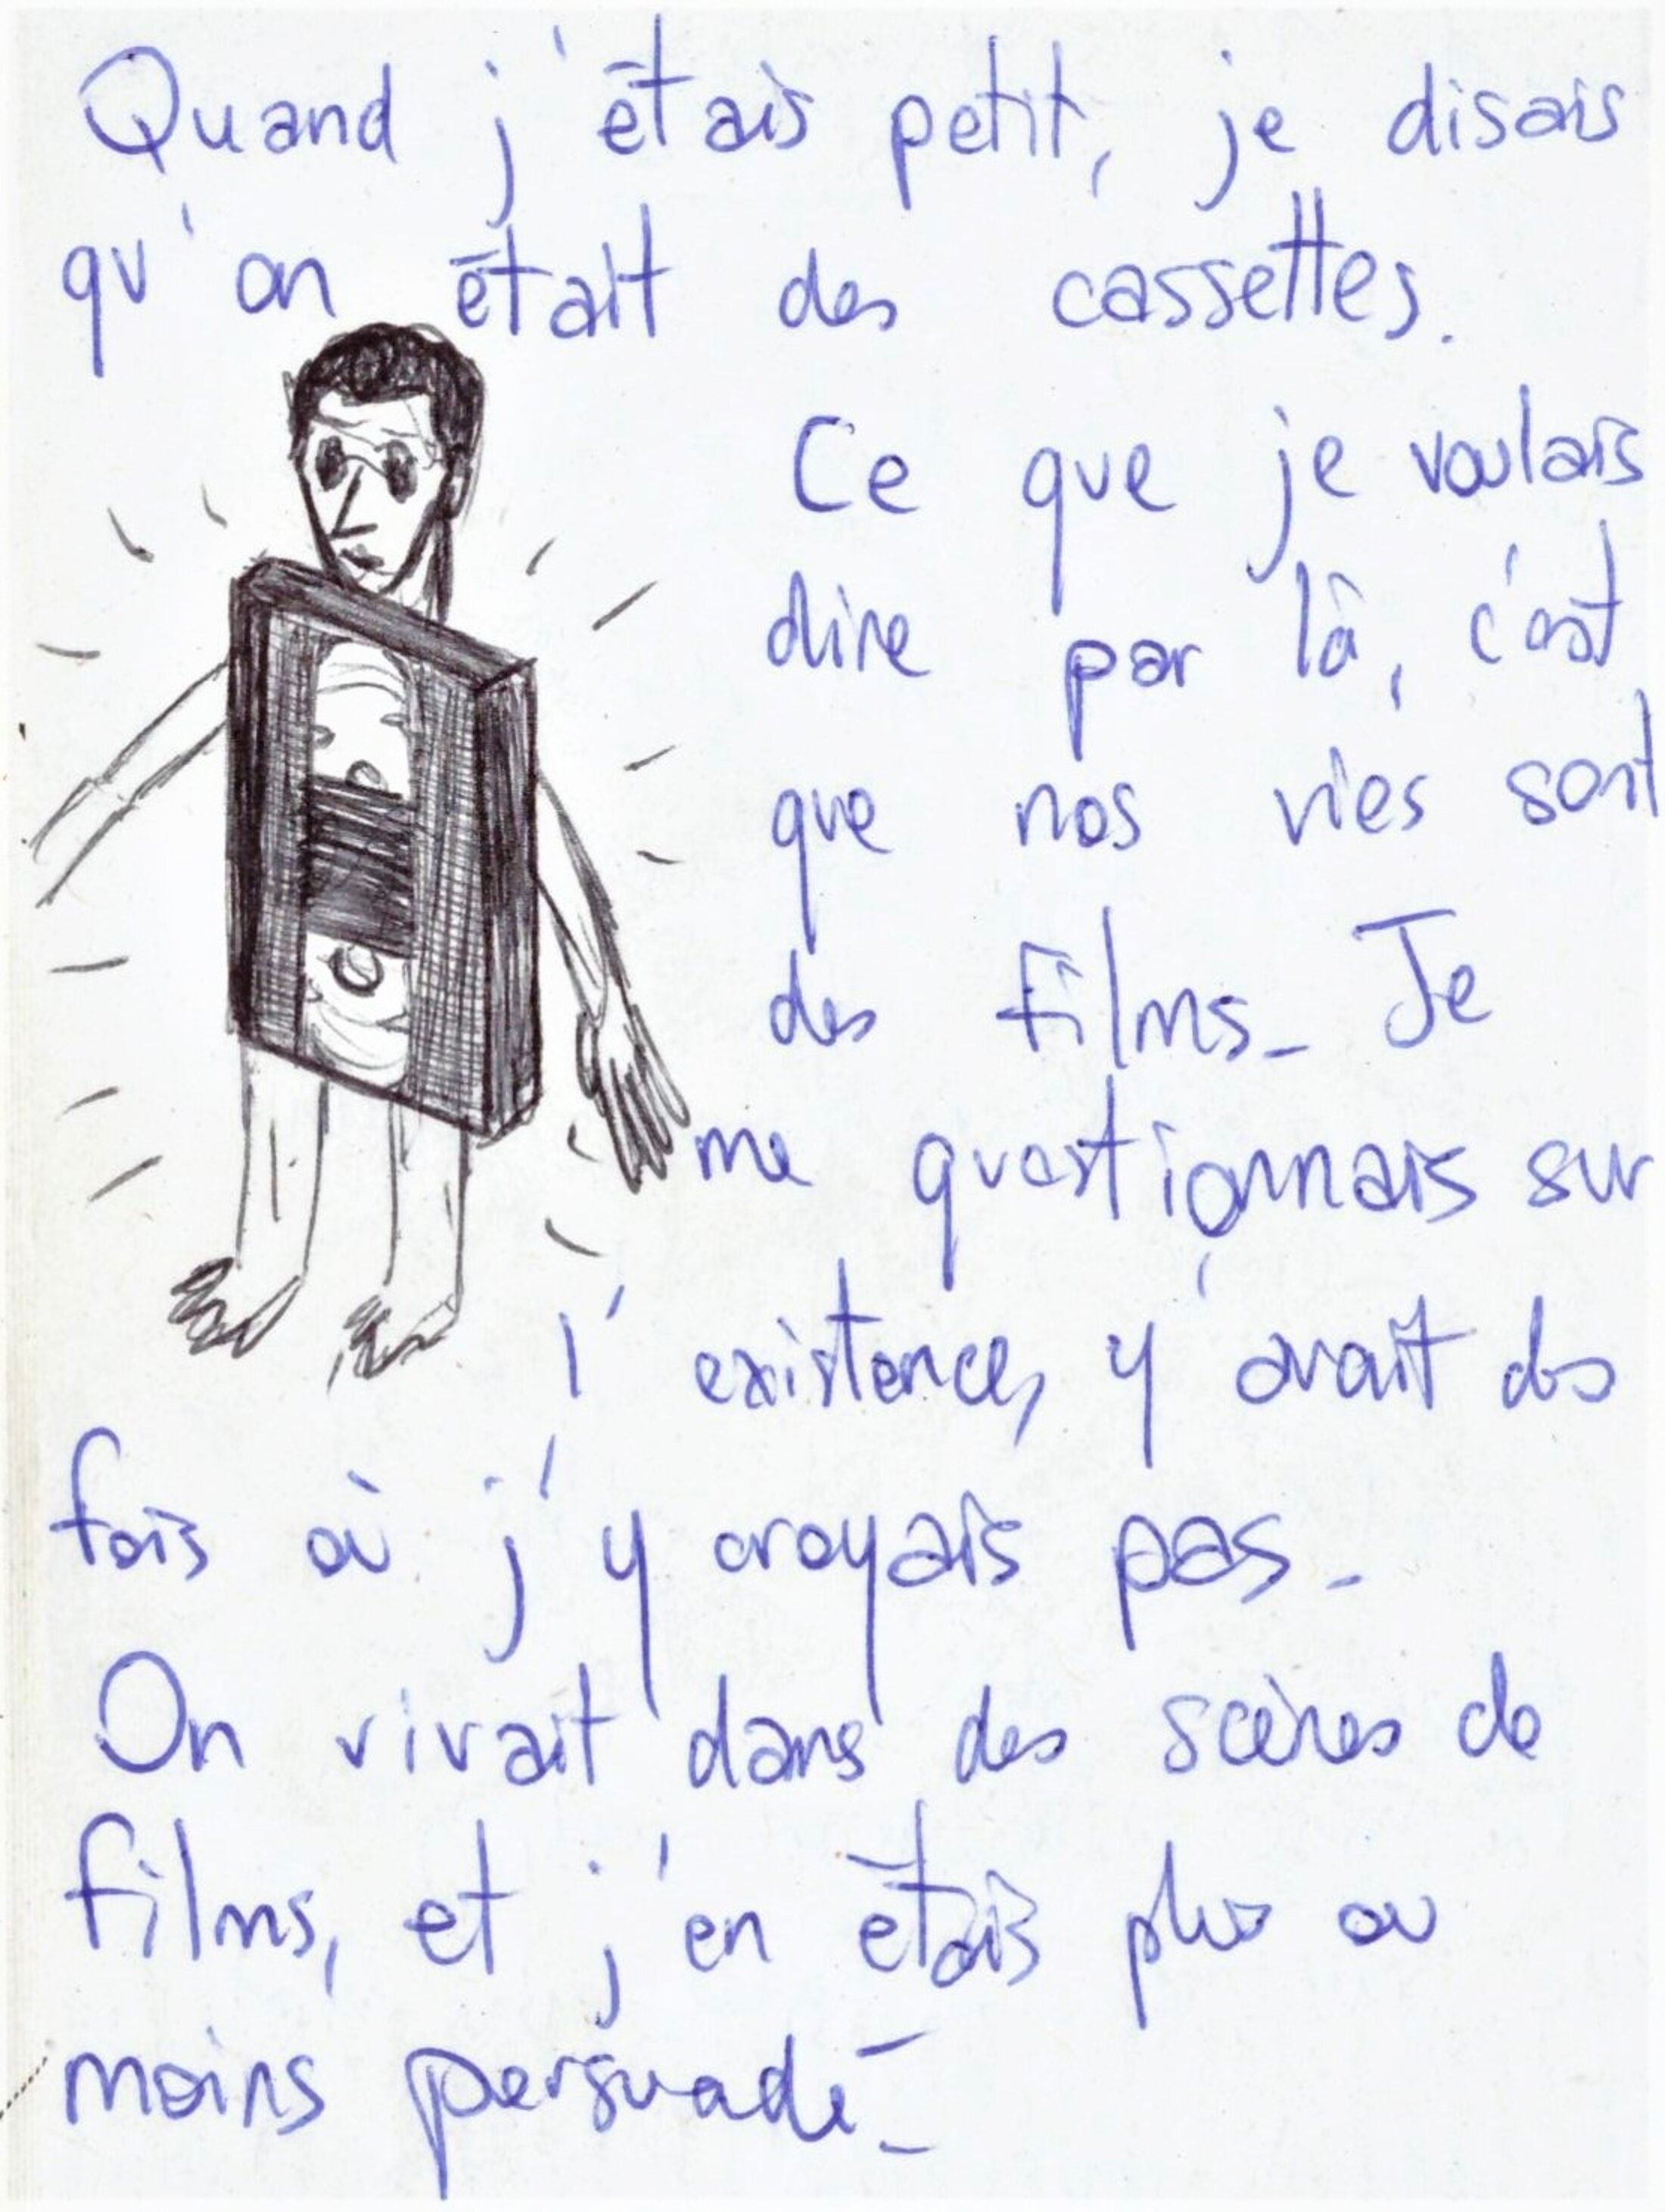 Quand j'étais petit, je disais
qu'on était des cassettes.
Ce que je voulais
dire par là, c'est
que nos vies sont
des films. Je
me questionnais sur
l'existence, y'avait des
fois où j'y croyais pas.
On vivait dans des scènes de
films, et j'en étais plus ou
moins persuadé.